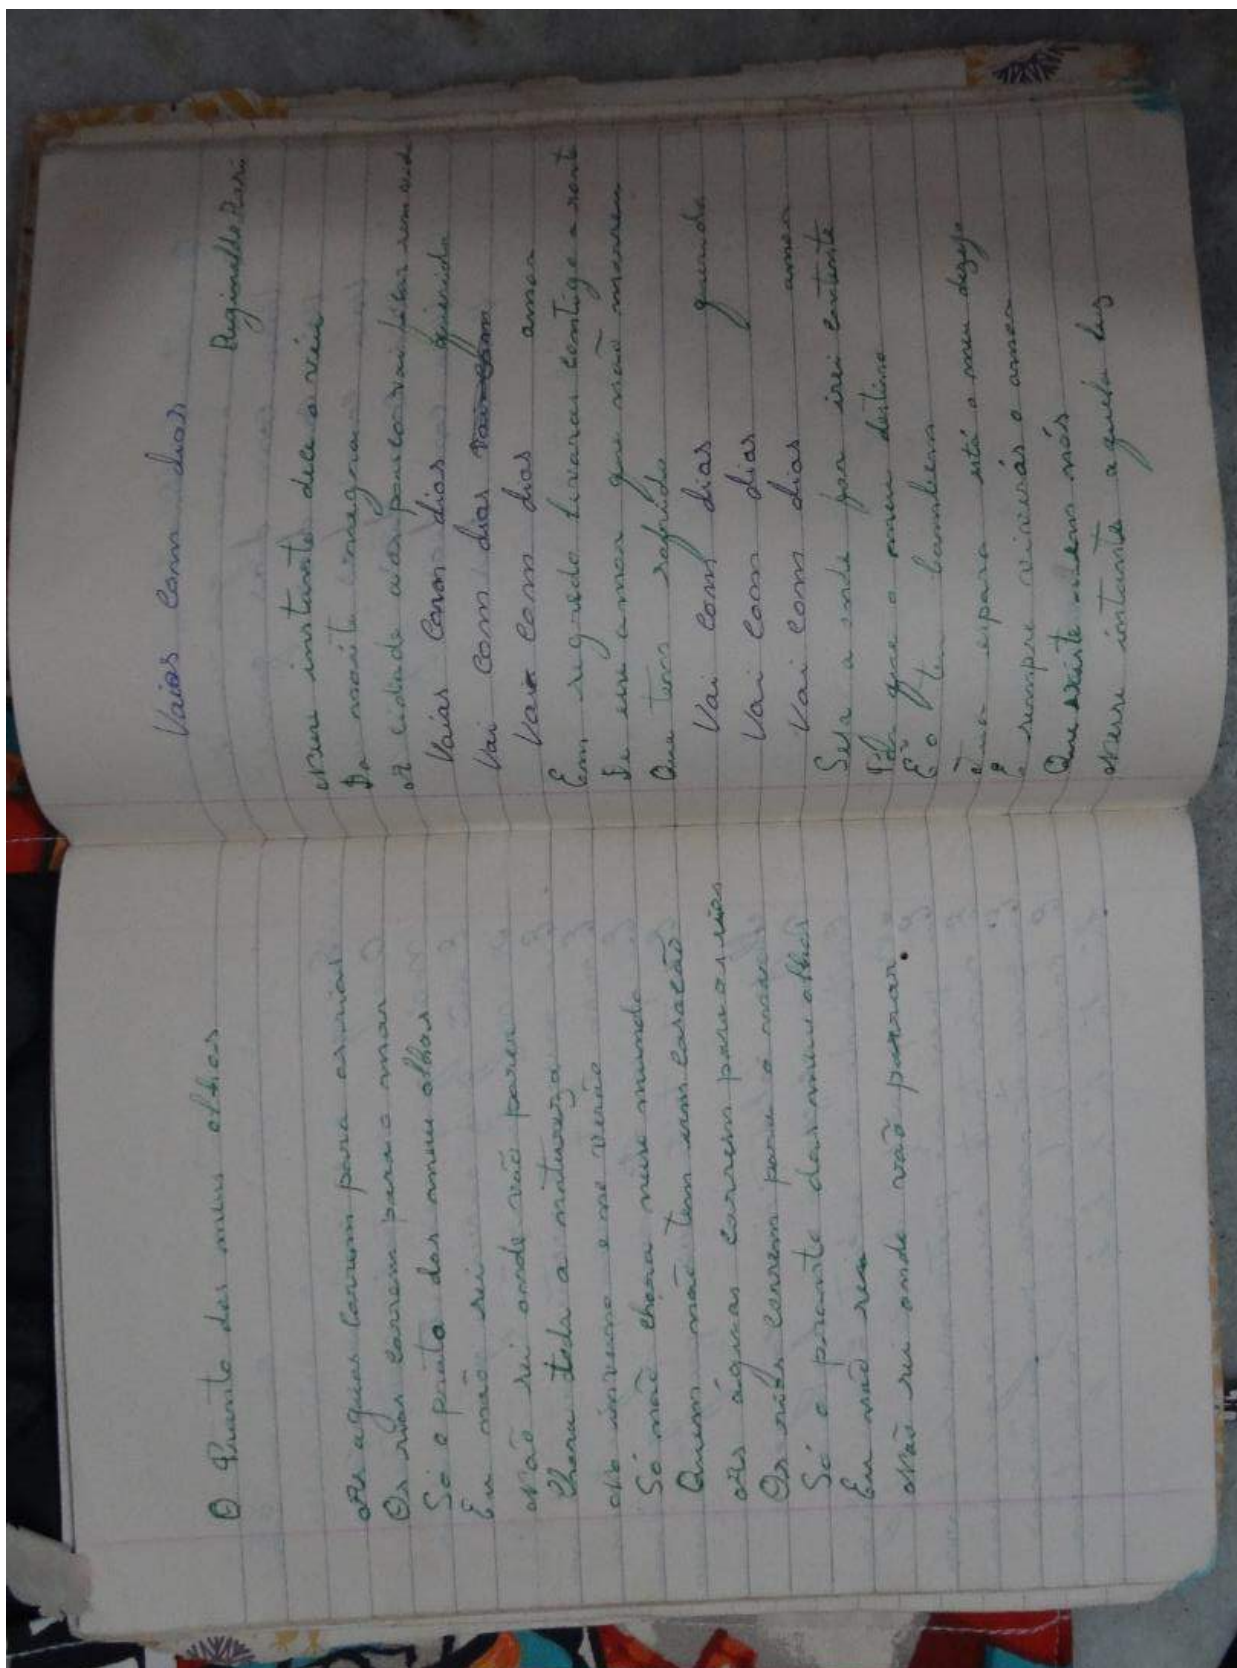 O Pranto dos meus olhos
As aguas correm para os rios
Os rios correm para o mar
Só o pranto dos meus olhos
Eu não sei
Não sei onde vão parar
Chora toda a natureza
No inverno e no verão
Só não chora nesse mundo
Quem não tem um coração
As águas correm para os rios
Os rios correm para o mar
Só o pranto dos meus olhos
Eu não sei
Não sei onde vão parar.
Vaias com dias
Reginaldo
Nesse instante dece o véu
Da noite negra
A cidade aos poucos vai ficar
Vaias com dias querida
Vai com dias vai com
Vai com dias amor
Em segredo levarás contigo a
De um amor que não morreu
Que tem sofrido
Vai com dias querida
Vai com dias
Vai com dias amor
Seja a onde for irei contente
que o meu destino
E o teu também
espera está o meu dezejo
E sempre o amor
Que existe alem nós
Nesse intante aquela luz